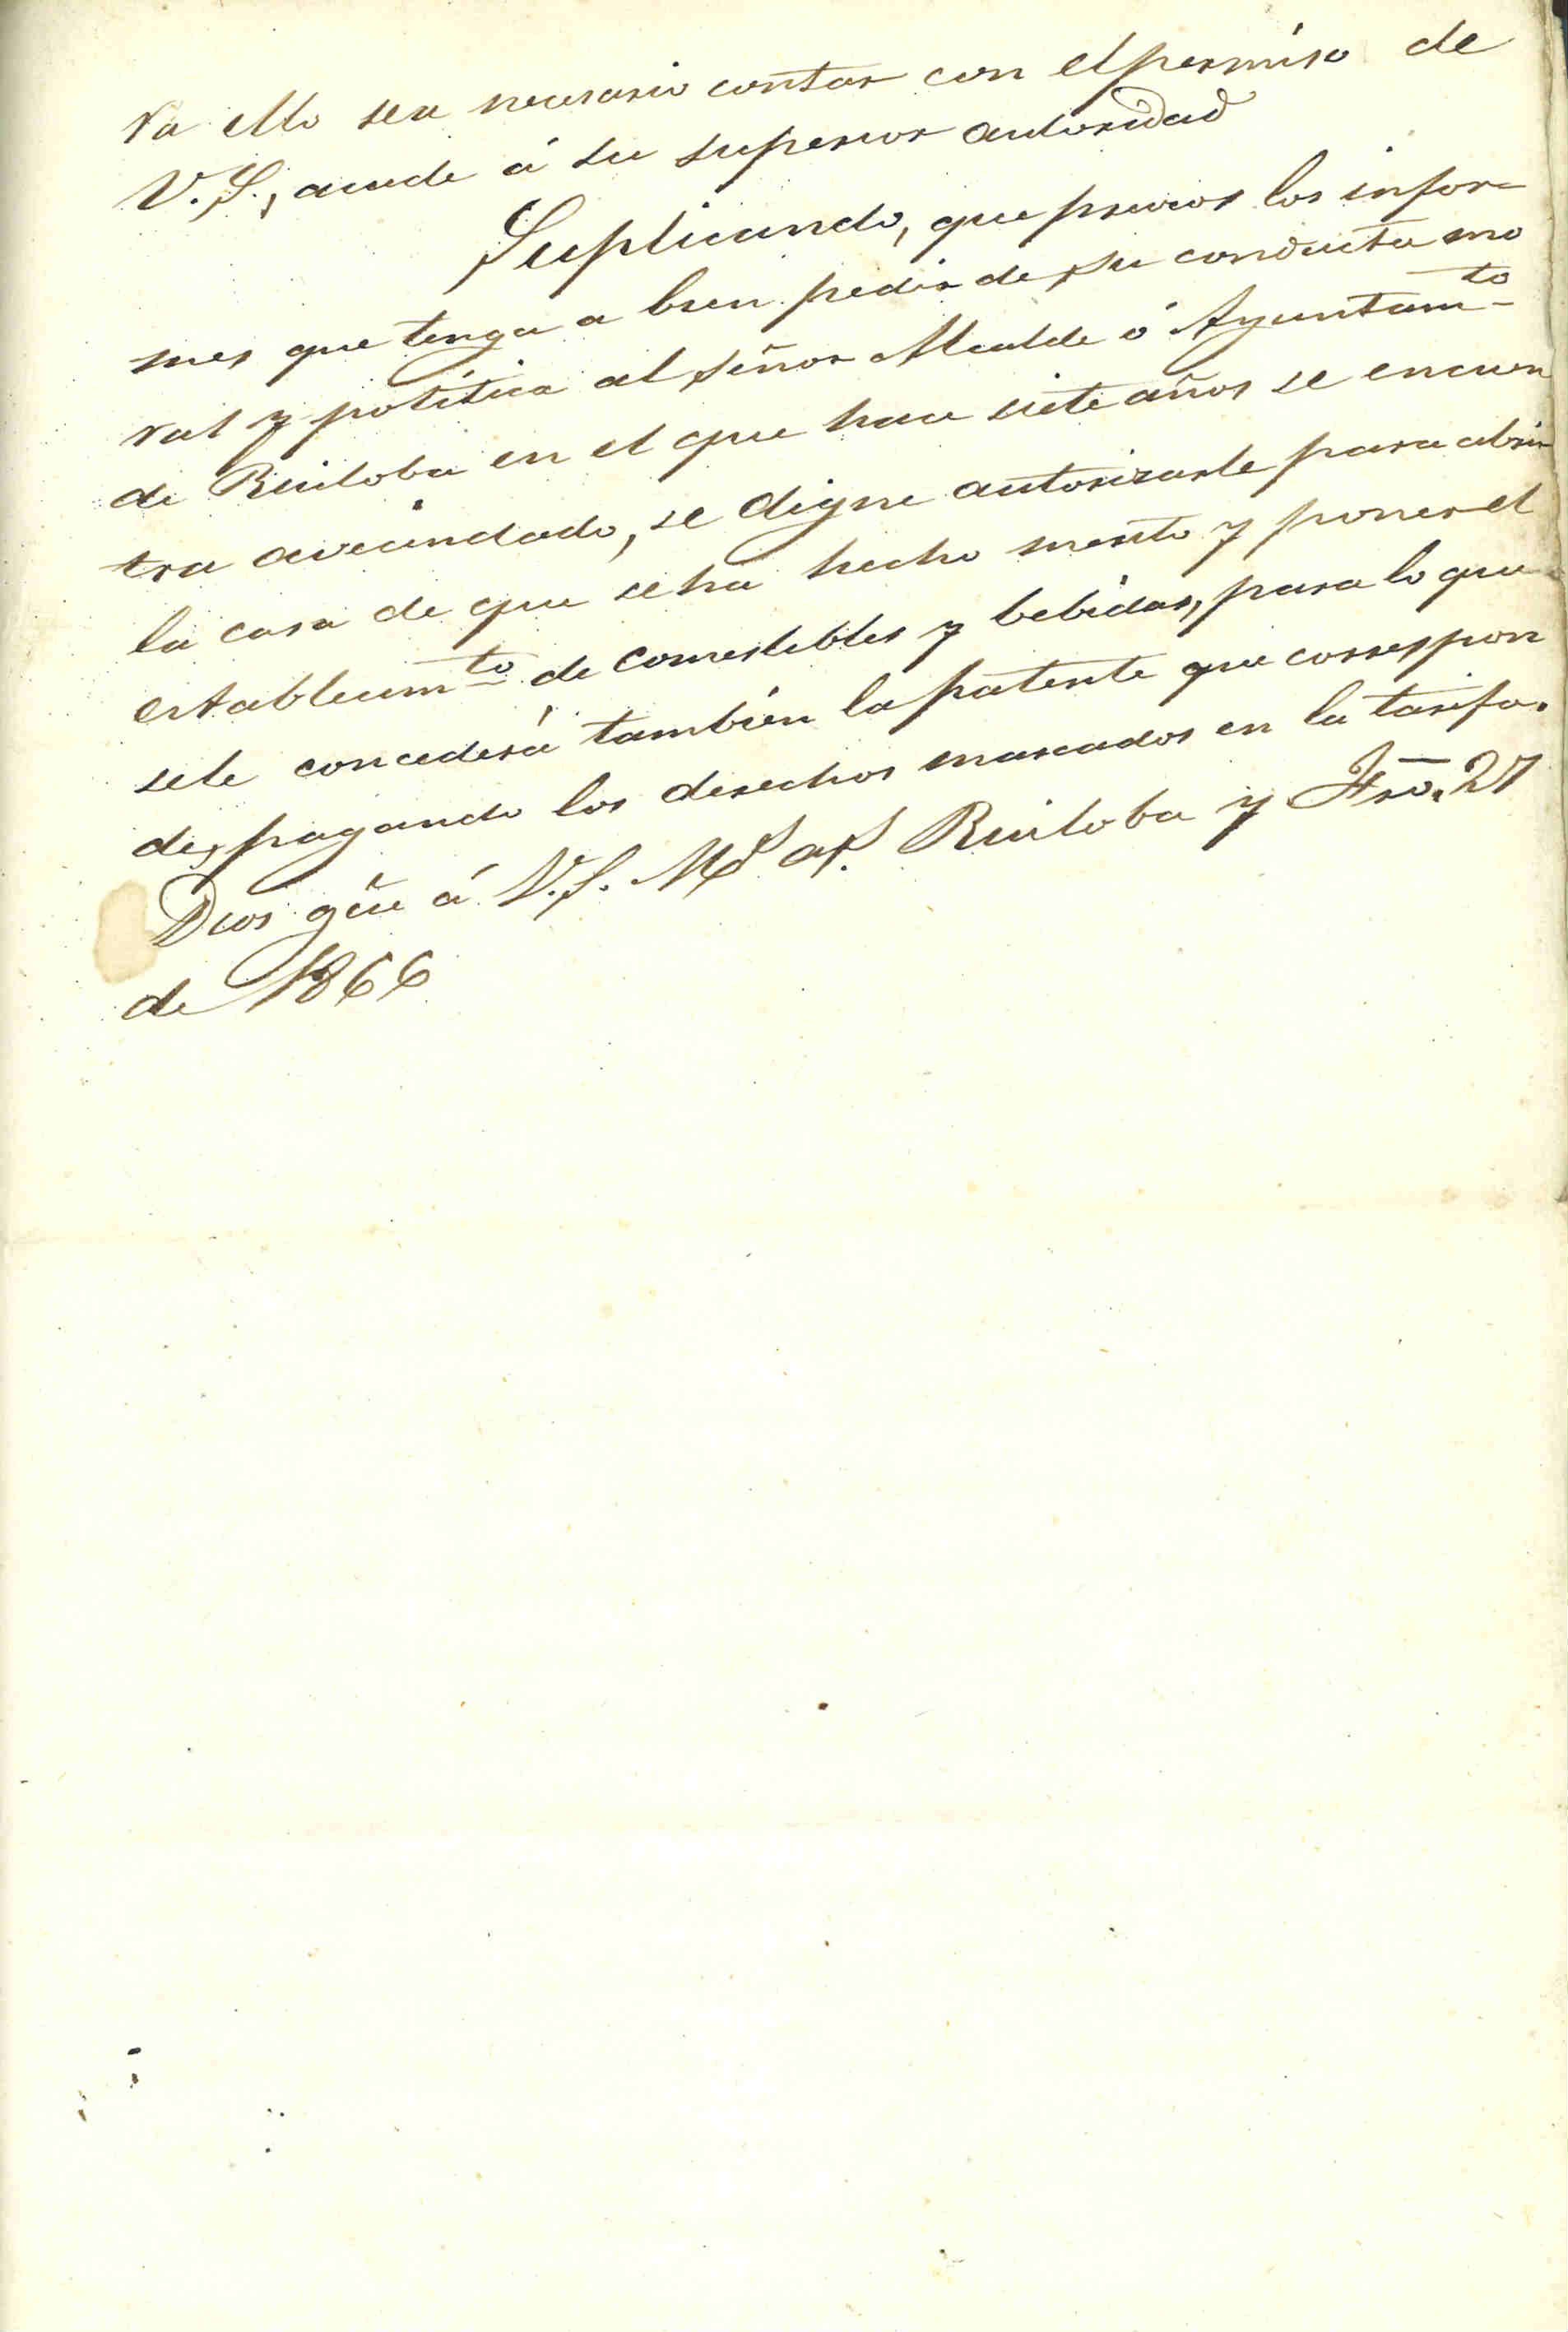 ra ello sea necesario contar con el permiso de
V. S., acude á su superior autoridad
Suplicando, que previos los infor-
mes que tenga a bien pedir de su conducta mo
ral y política al señor Alcalde ó Ayuntam^to
de Ruiloba en el que hace siete años se encuen
tra avecindado, se digne autorizarle para abrir
la casa de que se ha hecho merito y poner el
establecim^to de comestibles y bebidas, para lo que
se le concederá también la patente que correspon
de, pagando los derechos marcados en la tarifa.
Dios gũe á V. S. M^s a^s. Ruiloba y 27
de 1866